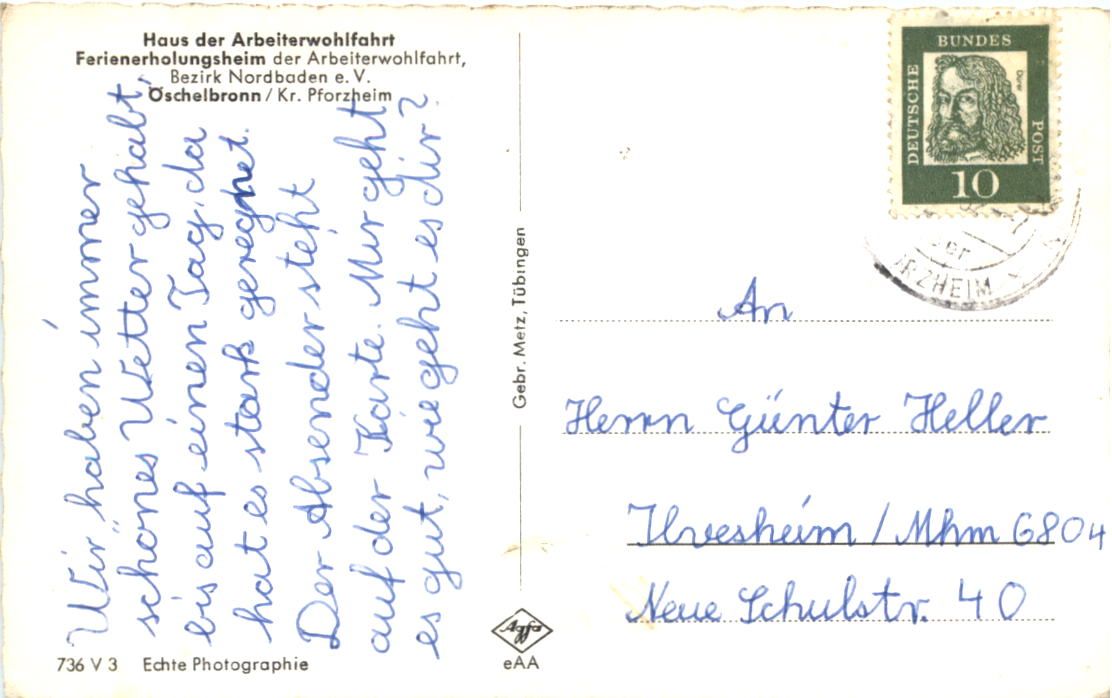 Haus der Arbeiterwohlfahrt
Ferienerholungsheim der Arbeiterwohlfahrt,
Bezirk Nordbaden e. V.
Öschelbronn / Kr. Pforzheim
Wir haben immer
schönes Wetter gehabt,
bis auf einen Tag, da
hat es stark geregnet.
Der Absender steht
auf der Karte. Mir geht
es gut, wie geht es dir?
736 V 3 Echte Photographie
Gebr. Metz, Tübingen
Agfa
eAA
DEUTSCHE
BUNDES
POST
Dürer
10
RZHEIM
An
Herrn Günter Heller
Ilvesheim / Mhm 6804
Neue Schulstr. 40